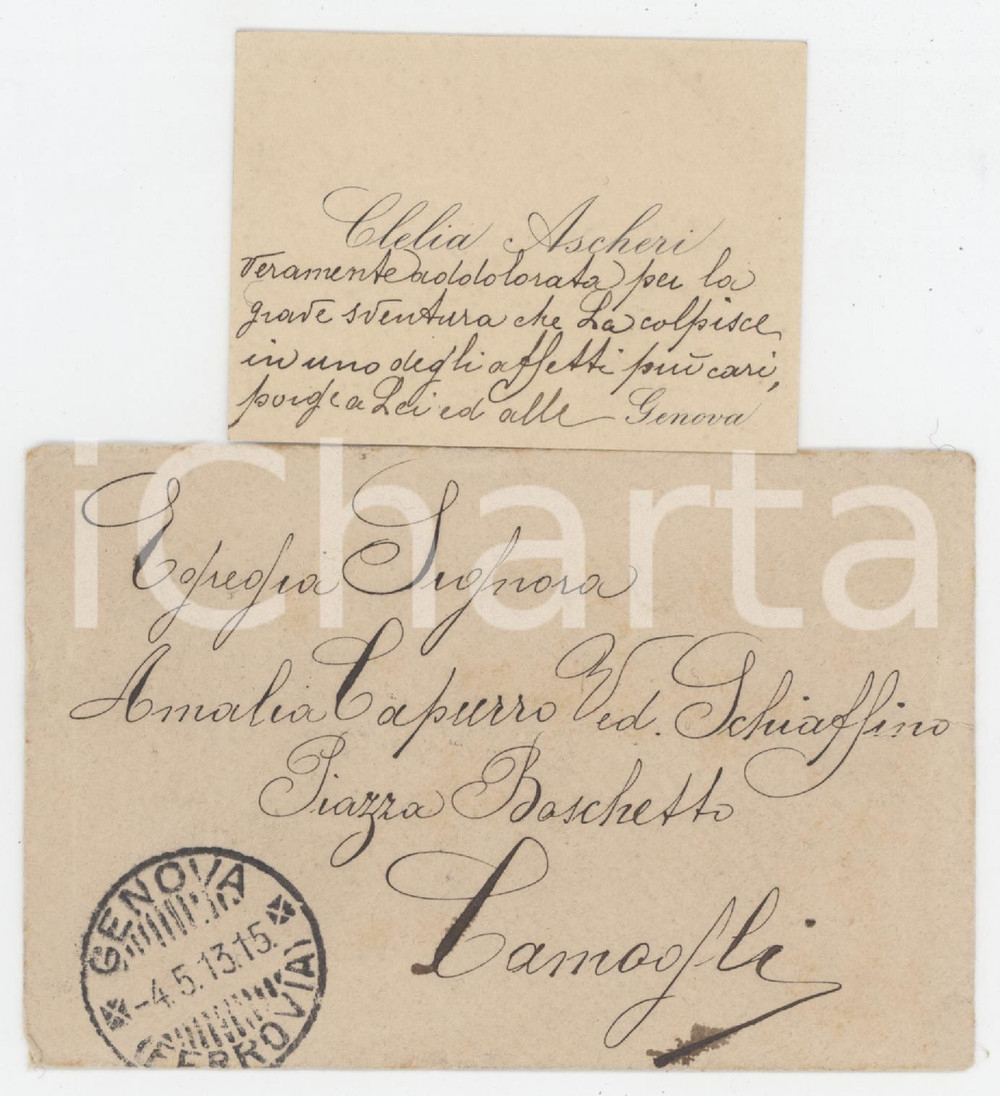 Clelia Ascheri
veramente addolorata per la
grave sventura che La colpisce
in uno degli affetti più cari,
porge a Lei ed alle
Genova
iCharta
Egregia Signora
Amalia Capurro Ved. Schiaffino
Piazza Boschetto
Camogli
GENOVA
-4.5.13.15
FERROVIA